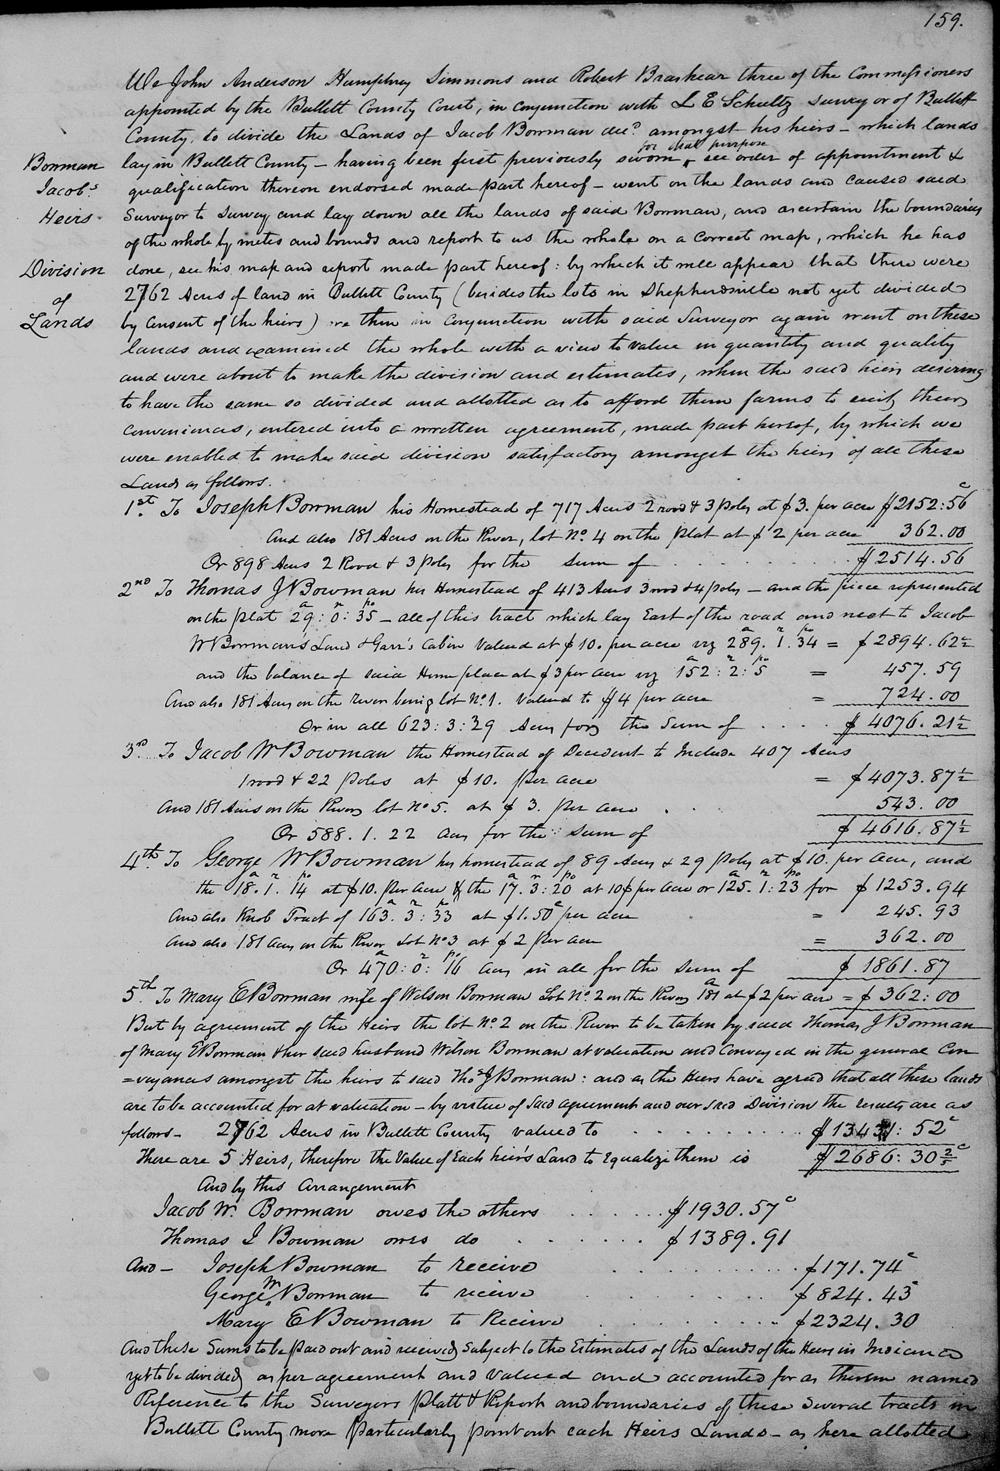 159.
We John Anderson Humphrey Simmons and Robert Brashear three of the Commissioners
appointed by the Bullett County Court, in conjunction with L E Schultz Surveyor of Bullett
County, to divide the Lands of Jacob Bowman decd. amongst his heirs - which lands
for that purpose
lay in Bullett County - having been first previously sworn, see order of appointment &
qualification thereon endorsed made part hereof - went on the lands and caused said
Surveyor to Survey and lay down all the lands of said Bowman, and ascertain the boundaries
of the whole by metes and bounds and report to us the whole on a correct map, which he has
done, see his map and report made part hereof: by which it will appear that there were
2762 Acres of land in Bullett County (besides the lots in Shepherdsville not yet divided
by consent of the heirs) we then in conjunction with said Surveyor again went on these
lands and examined the whole with a view to value in quantity and quality
and were about to make the division and estimates, when the said heirs desiring
to have the same so divided and allotted as to afford them farms to suit their
conveniences, entered into a written agreement, made part hereof, by which we
were enabled to make said division satisfactory amongst the heirs of all these
Lands as follows.
Bowman
Jacob's
Heirs.
Division
of
Lands
1st. To Joseph Bowman his Homestead of 717 Acres 2 rood & 3 Poles at $3. per acre $2152:56c
And also 181 Acres on the River, lot No. 4 on the plat at $2 per acre 362.00
Or 898 Acres 2 Rood & 3 Poles for the sum of $2514.56
2nd To Thomas J Bowman his Homestead of 413 Acres 3 rood & 4 poles - and the piece represented
on the plat 29a: 0r: 35po - all of this tract which lay East of the road and next to Jacob
W Bowman's Land & Garr's Cabin Valued at $10. per acre viz 289a. 1r. 34po = $2894.62½
and the balance of said Home place at $3 per acre viz 152a: 2r: 5po = 457.59
And also 181 Acres on the River being lot No 1. Valued to $4 per acre = 724.00
Or in all 623: 3: 39 Acres for the Sum of $4076.21½
3rd. To Jacob W Bowman the Homestead of Decedent to Include 407 Acres
1 rood & 22 Poles at $10. per acre = $4073.87½
And 181 Acres on the River lot No 5. at $3. per acre 543.00
Or 588. 1. 22 acres for the sum of $4616.87½
4th. To George W Bowman his homestead of 89 Acres & 29 Poles at $10. per acre, and
the 18a. 1r. 14po at $10. per acre & the 17a. 3r: 20po at 10$ per acre or 125a. 1r: 23po for $1253.94
And also Knob Tract of 163a. 3r: 33po at $1.50c per acre = 245.93
And also 181 acres on the River Lot No 3 at $2 per acre = 362.00
Or 470a: 0r: 16po acres in all for the sum of $1861.87
5th. To Mary E Bowman wife of Wilson Bowman Lot No. 2 on the River 181a at $2 per acre = $362:00
But by agreement of the Heirs the lot No. 2 on the River to be taken by said Thomas J Bowman
of Mary E Bowman & her said husband Wilson Bowman at valuation and Conveyed in the general Con
=veyances amongst the heirs to said Thos J Bowman: and as the Heirs have agreed that all these lands
are to be accounted for at valuation - by virtue of said agreement and our said Division the results are as
follows - 2762 Acres in Bullett County valued to $13431:52c
There are 5 Heirs, therefore the Value of Each heir's Land to Equalize them is $2686:30⅖c
And by this arrangement
Jacob W. Bowman owes the others $1930.57c
Thomas J Bowman owes do $1389.91
And - Joseph Bowman to receive $171.74c
George W. Bowman to receive $824.43
Mary E Bowman to Receive $2324.30
And these Sums to be paid out and received Subject to the Estimates of the Lands of the Heirs in Indiana
yet to be divided as per agreement and Valued and accounted for as therein named
Reference to the Surveyors Platt & Report and boundaries of these several tracts in
Bullett County more particularly point out each Heirs Lands - as here allotted